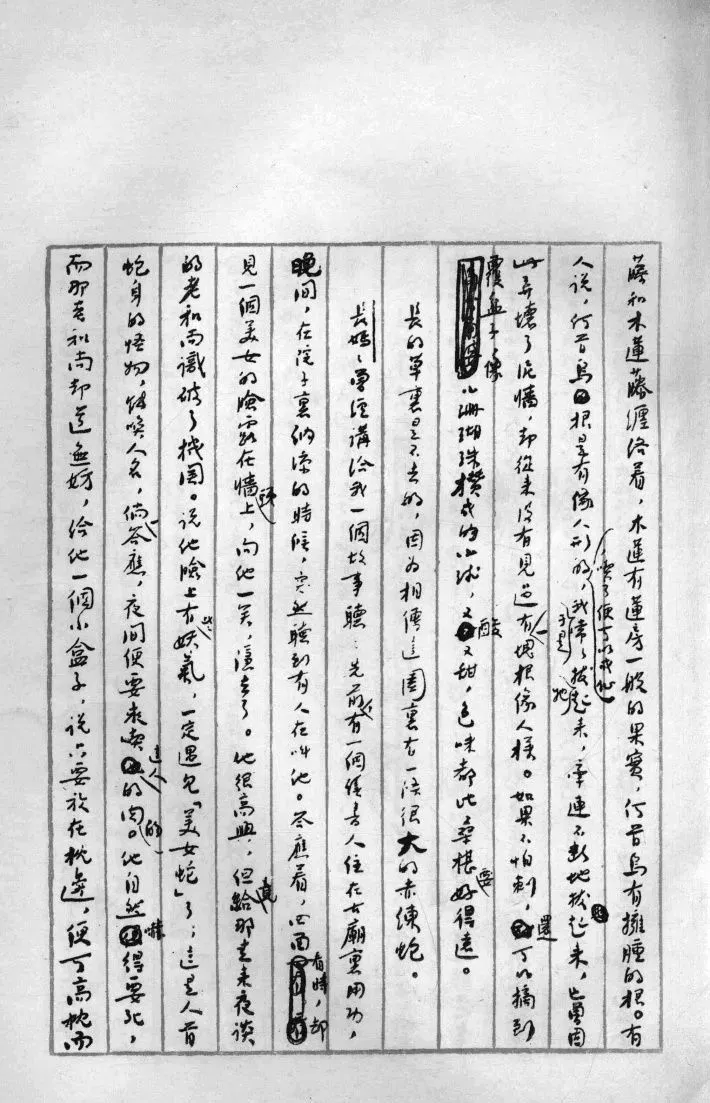 藤和木蓮藤纏絡着,木蓮有蓮房一般的果實,何首烏有擁腫的根。有
人說,何首烏根是有像人形的,喫了便可以成仙,我于是常常拔它起來,牽連不斷地拔起來,也曾因
此弄壞了泥牆,却從來沒有見過有一塊根像人樣。如果不怕刺,還可以摘到
覆盆子,像小珊瑚珠攢成的小球,又酸又甜,色味都比桑椹要好得遠。
長的草裏是不去的,因为相傳這園裏有一條很大的赤練蛇。
長媽媽曾經講給我一個故事聽:先前,有一個讀書人住在古廟裏用功,
晚間,在院子裏納涼的時候,突然聽到有人在叫他。答應着,四面看時,却
見一個美女的臉露在牆頭上,向他一笑,隱去了。他很高興;但竟給那走來夜談
的老和尚識破了機關。說他臉上有些妖氣,一定遇見「美女蛇」了;這是人首
蛇身的怪物,能喚人名,倘一答應,夜間便要來喫這人的肉的。他自然嚇得要死,
而那老和尚却道無妨,給他一個小盒子,說只要放在枕邊,便可高枕而